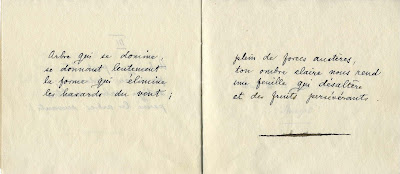 Arbre qui se domine,
se donnant lentement
la forme qui élimine
les hasards du vent ;
plein de forces austères ;
ton ombre claire nous rend
une feuille qui désaltère
et des fruits persévérants.